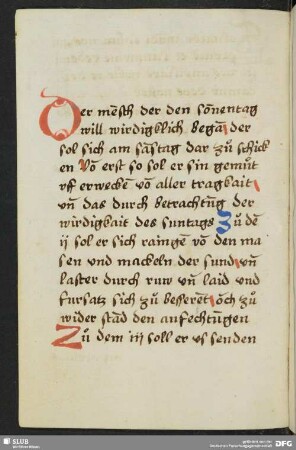 Der mēsch der den sōnentag
will wirdigklich begān der
sol sich am sāstag dar zů schick
en Vō erst so sol er sin gemůt
vff erweckē vō aller tragkait
vn̄ das durch betrachtūg der
wirdigkait des suntags Zů dē
ij sol er sich rainigē vō den ma
sen vnd mackeln der sund vn̄
laster durch ruw vn̄ laid vnd
fursatz sich zů besserēt öch zů
wider stād den anfechtūgen
Zů dem iij soll er vs senden
SLUB
DFG